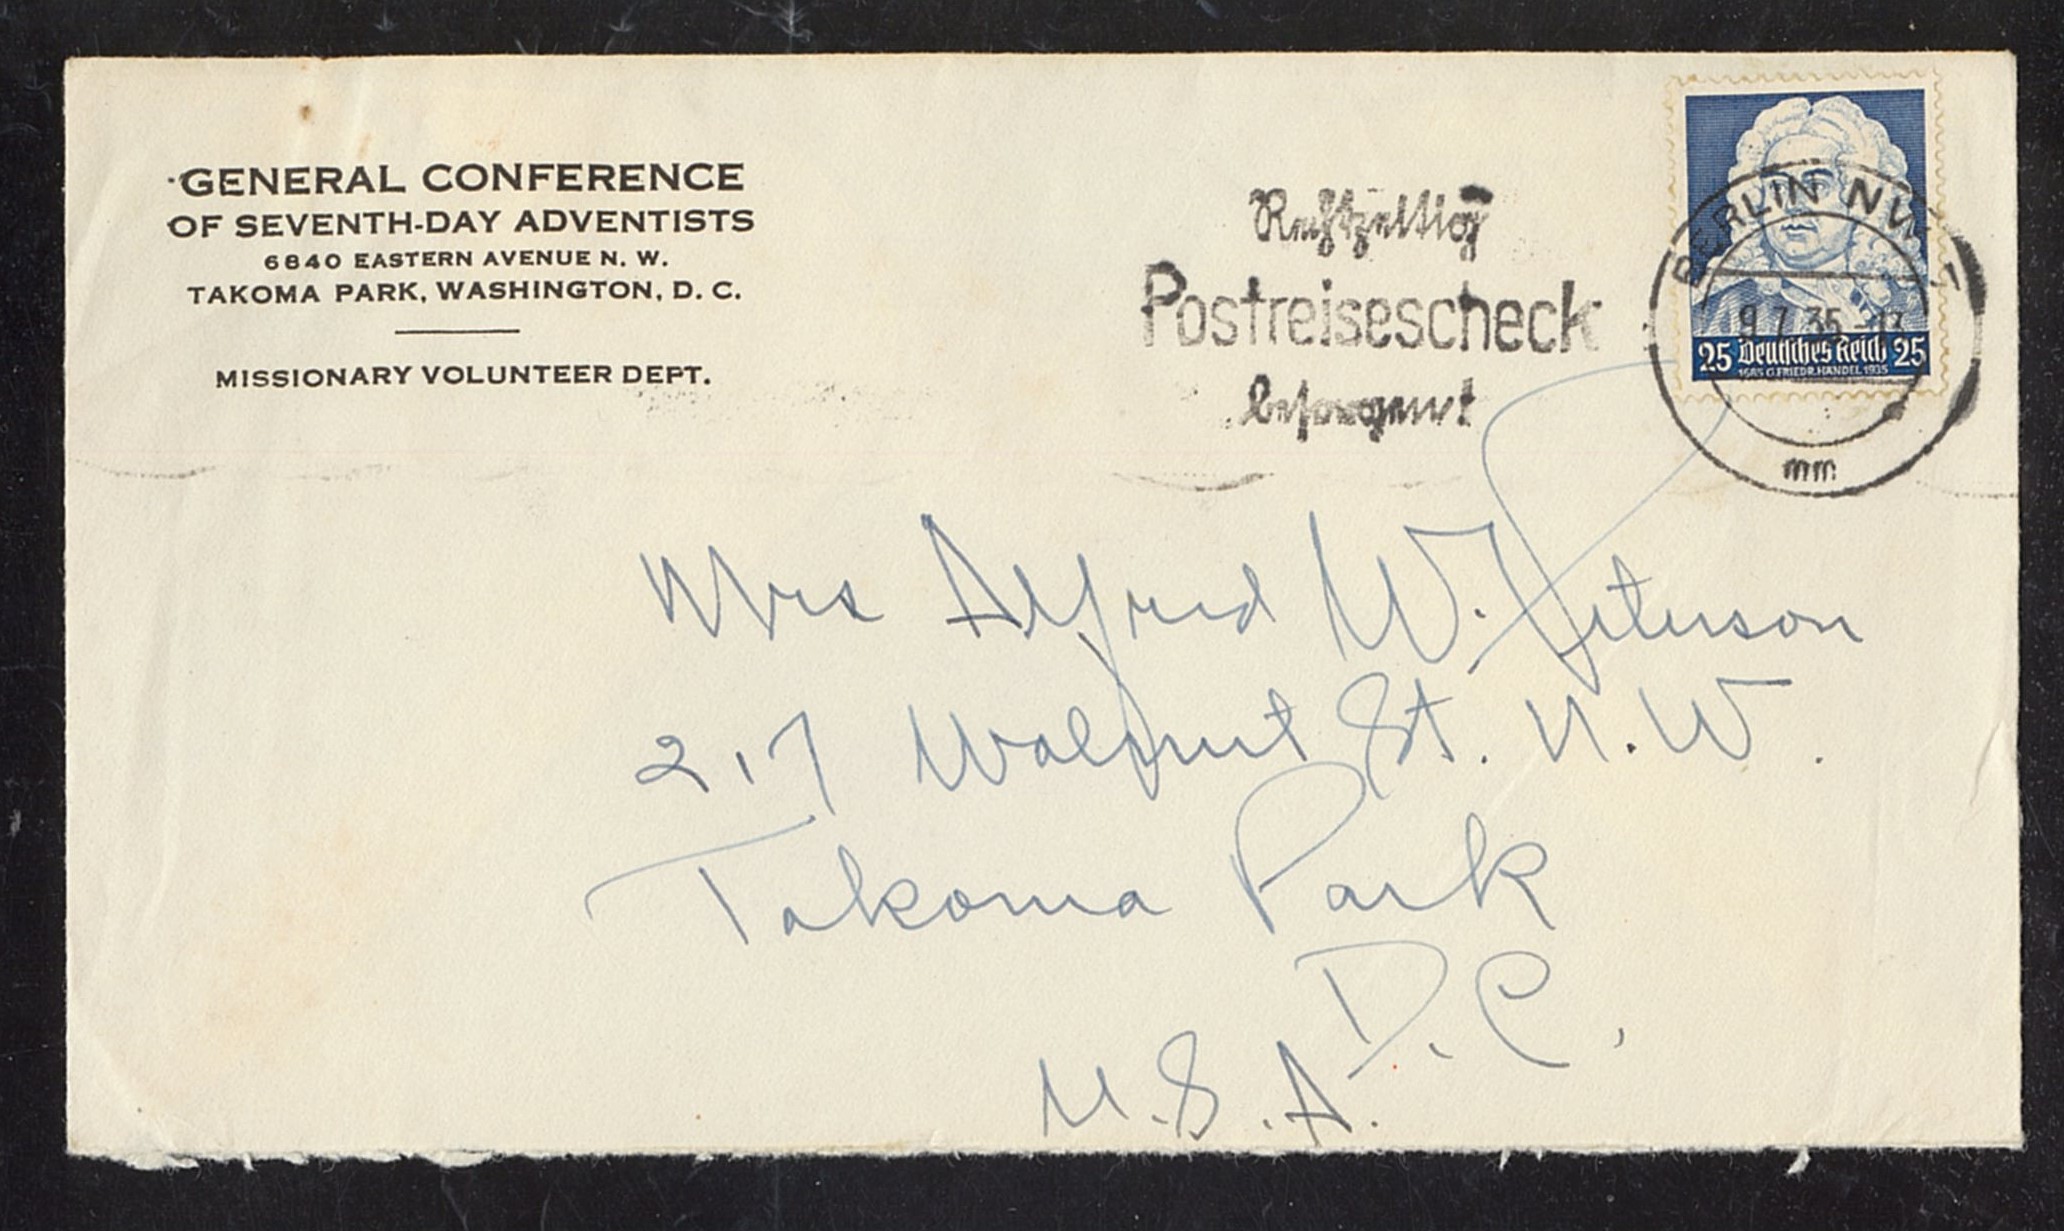 GENERAL CONFERENCE
OF SEVENTH-DAY ADVENTISTS
6840 EASTERN AVENUE N. W.
TAKOMA PARK, WASHINGTON, D. C.
MISSIONARY VOLUNTEER DEPT.
Rechtzeitig
Postreisescheck
besorgen
BERLIN NW
9.7.35-13
mm
25 Deutsches Reich 25
1685 G. FRIEDR. HÄNDEL 1935
Mrs Alfred W. Peterson
217 Walnut St. N.W.
Takoma Park
D.C.
U.S.A.